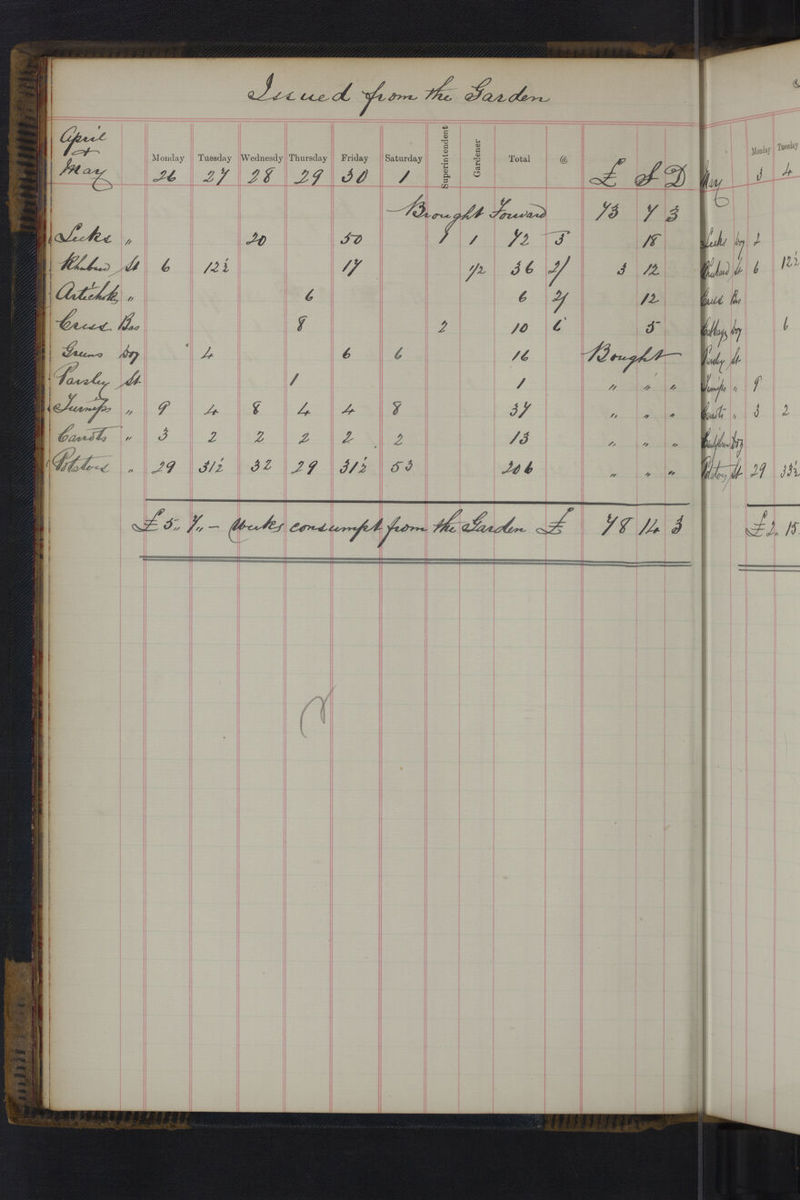 Issued from the Garden
April + May Monday 26 Tuesday 27 Wednesdy 28 Thursday 29 Friday 30 Saturday 1 Superintendent Gardener Total @ £ S D
Brought Forward 73 7 3
Leeks " 20 50 1 1 72 3 18
Rhubarb St 6 12½ 17 ½ 36 2/ 3 12
Artichok " 6 6 2/ 12
Cress Bas 8 2 10 6 5
Greens Doz 4 6 6 16 Bought
Parsley St 1 1 " " "
Turnips " 9 4 8 4 4 8 37 " " "
Carrots " 3 2 2 2 2 2 13 " " "
Potatoes " 29 31½ 32 29 31½ 53 206 " " "
£5,, 7,, – Weeks consumpt from the Garden £ 78 14 3
Monday Tuesday
May 3 4
Leeks Doz 2
St 6 12½
Cress Bas
Doz 6
Parsley St
Turnips " 9
Carrots " 3 2
Doz
St 29 33½
£2,, 15